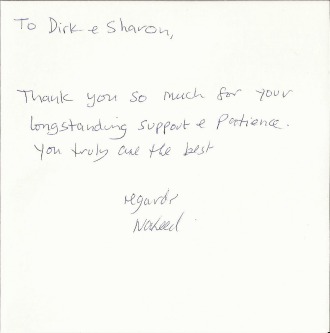 To Dirk e Sharon,
Thank you so much for your
longstanding support e Patience.
You truly are the best
regards
Naheed.